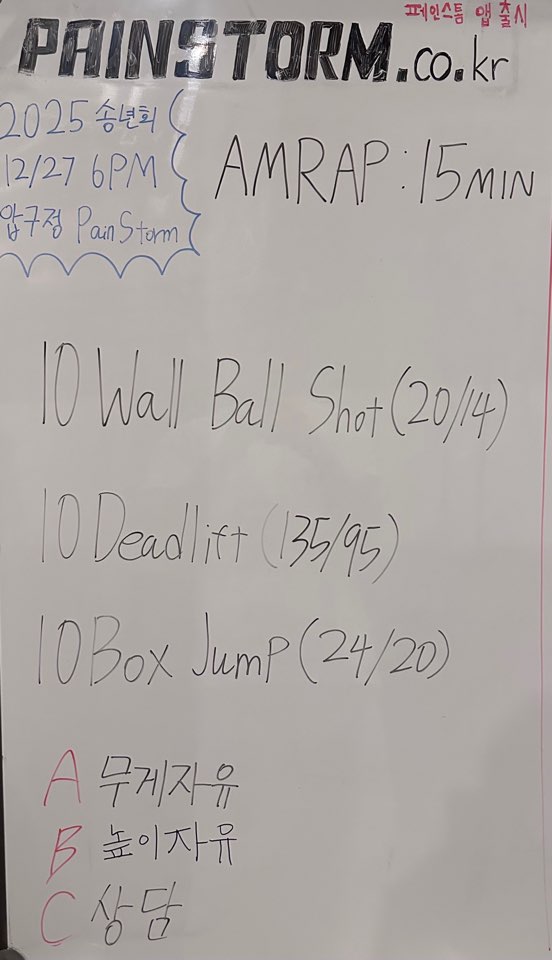 페인스톰 앱 출시
PAINSTORM.co.kr
2025 송년회
12/27 6PM
압구정 PainStorm
AMRAP : 15MIN
10 Wall Ball Shot (20/14)
10 Deadlift (135/95)
10 Box Jump (24/20)
A 무게자유
B 높이자유
C 상담